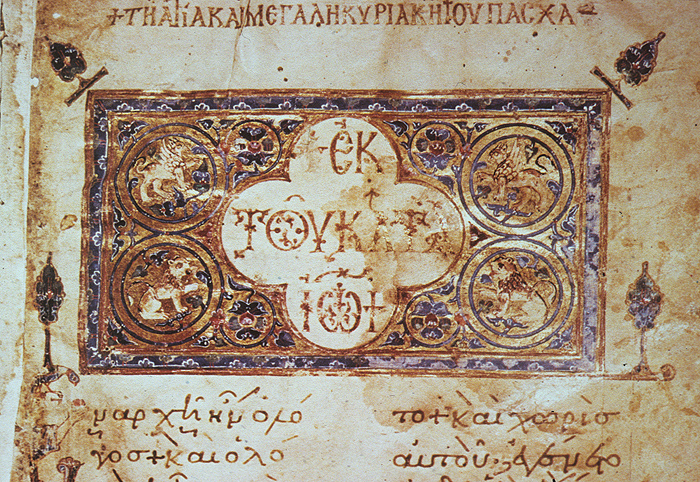 +ΤΗ ΑΓΙΑ ΚΑΙ ΜΕΓΑΛΗ ΚΥΡΙΑΚΗ ΤΟΥ ΠΑΣΧΑ
+ΕΚ
ΤΟΥ ΚΑΤΑ
ΙΩ+
ν αρχῆ ἦν ὁ λό
γος + και ο λό
το + και χωρὶς
αυτοῦ